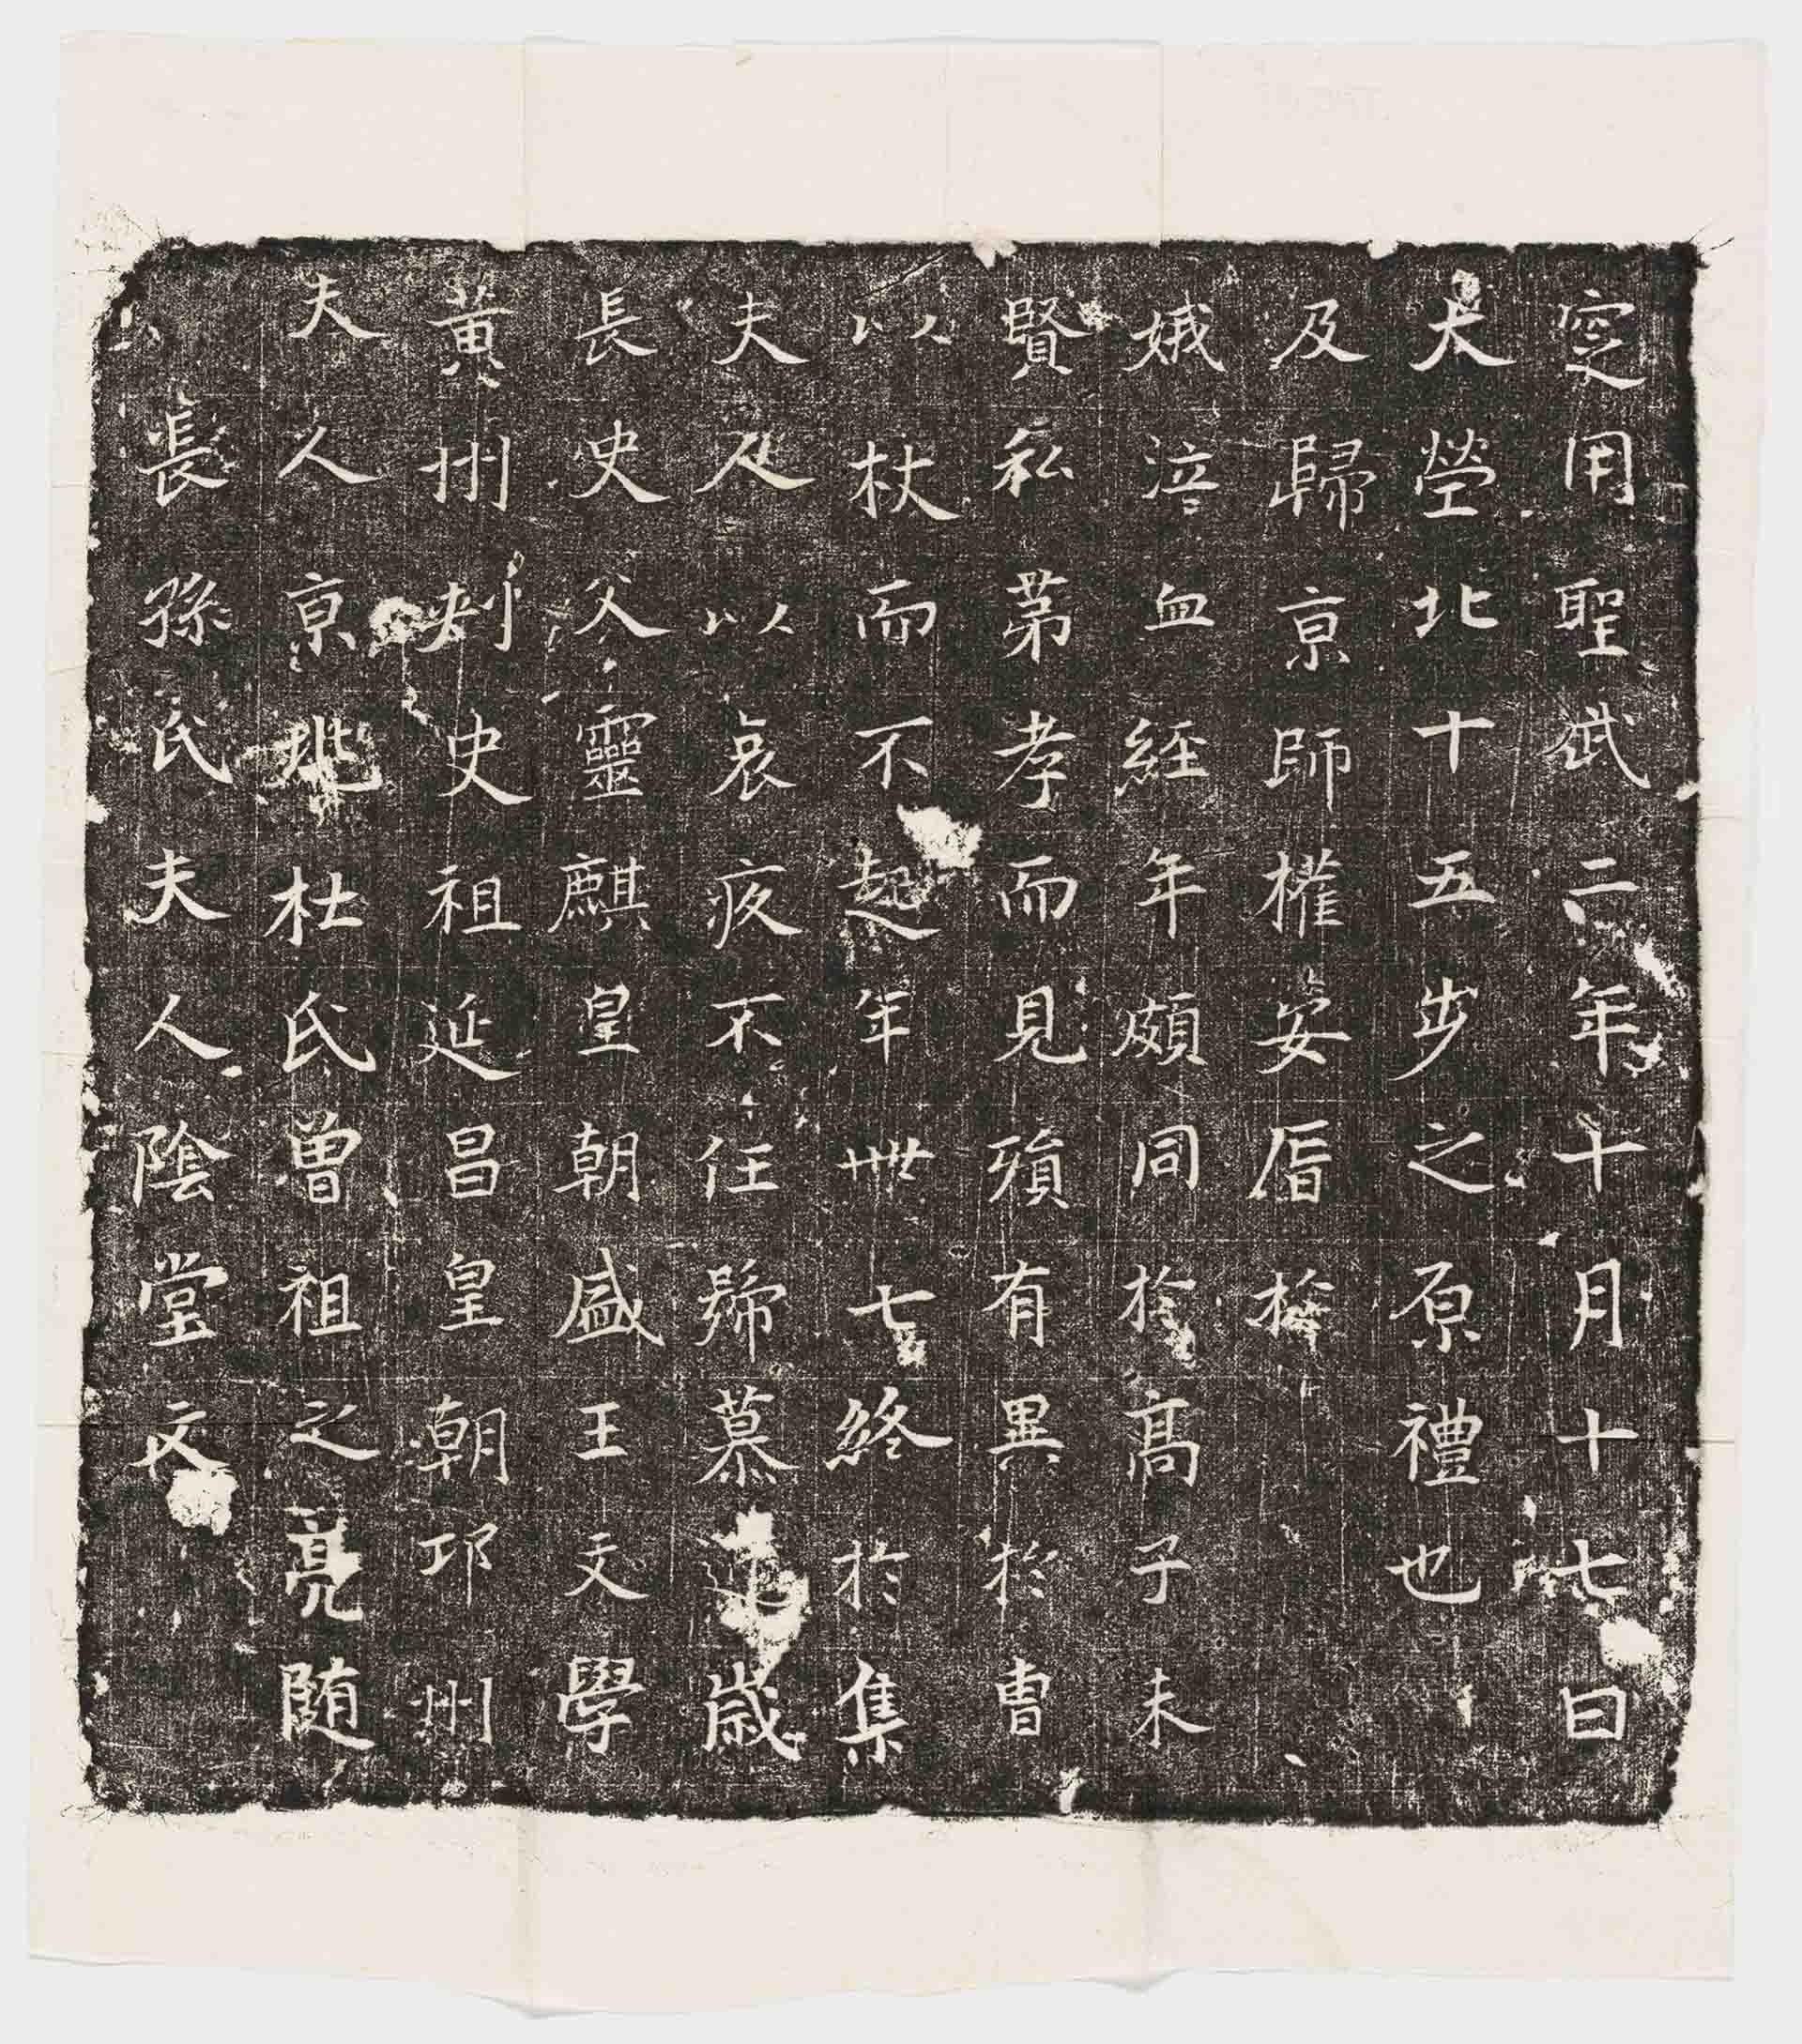 長孫氏夫人陰堂文
夫人亰兆杜氏曾祖之亮随
黄州刾史祖延昌皇朝邛州
長史父靈麒皇朝盛王文學
夫人以哀疚不任號慕歲
以杖而不起年卌七終於集
賢私苐孝而見殯有異於曹
娥泣血經年頗同於髙子未
及歸亰師權安厝於
大塋北十五步之原禮也
窆用聖武二年十月十七日